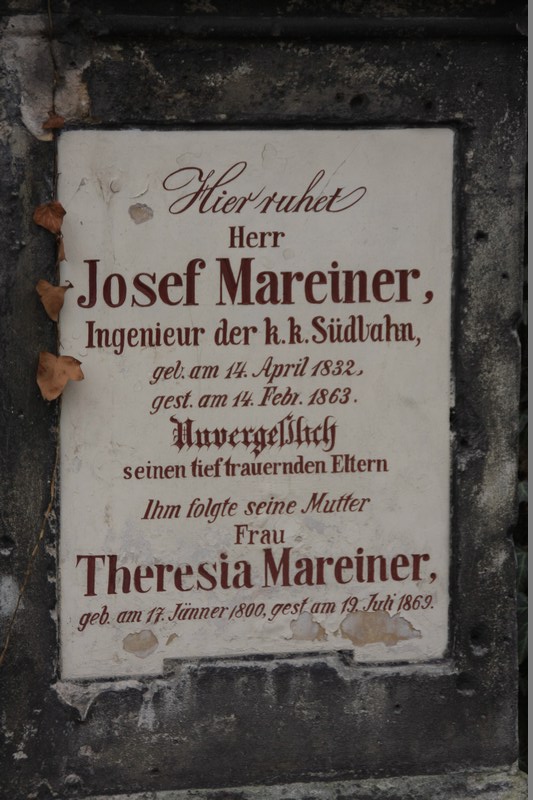 Hier ruhet
Herr
Josef Mareiner,
Ingenieur der k.k. Südbahn,
geb. am 14. April 1832,
gest. am 14. Febr. 1863.
Unvergeßlich
seinen tieftrauernden Eltern
Ihm folgte seine Mutter
Frau
Theresia Mareiner,
geb. am 17. Jänner 1800, gest am 19. Juli 1869.